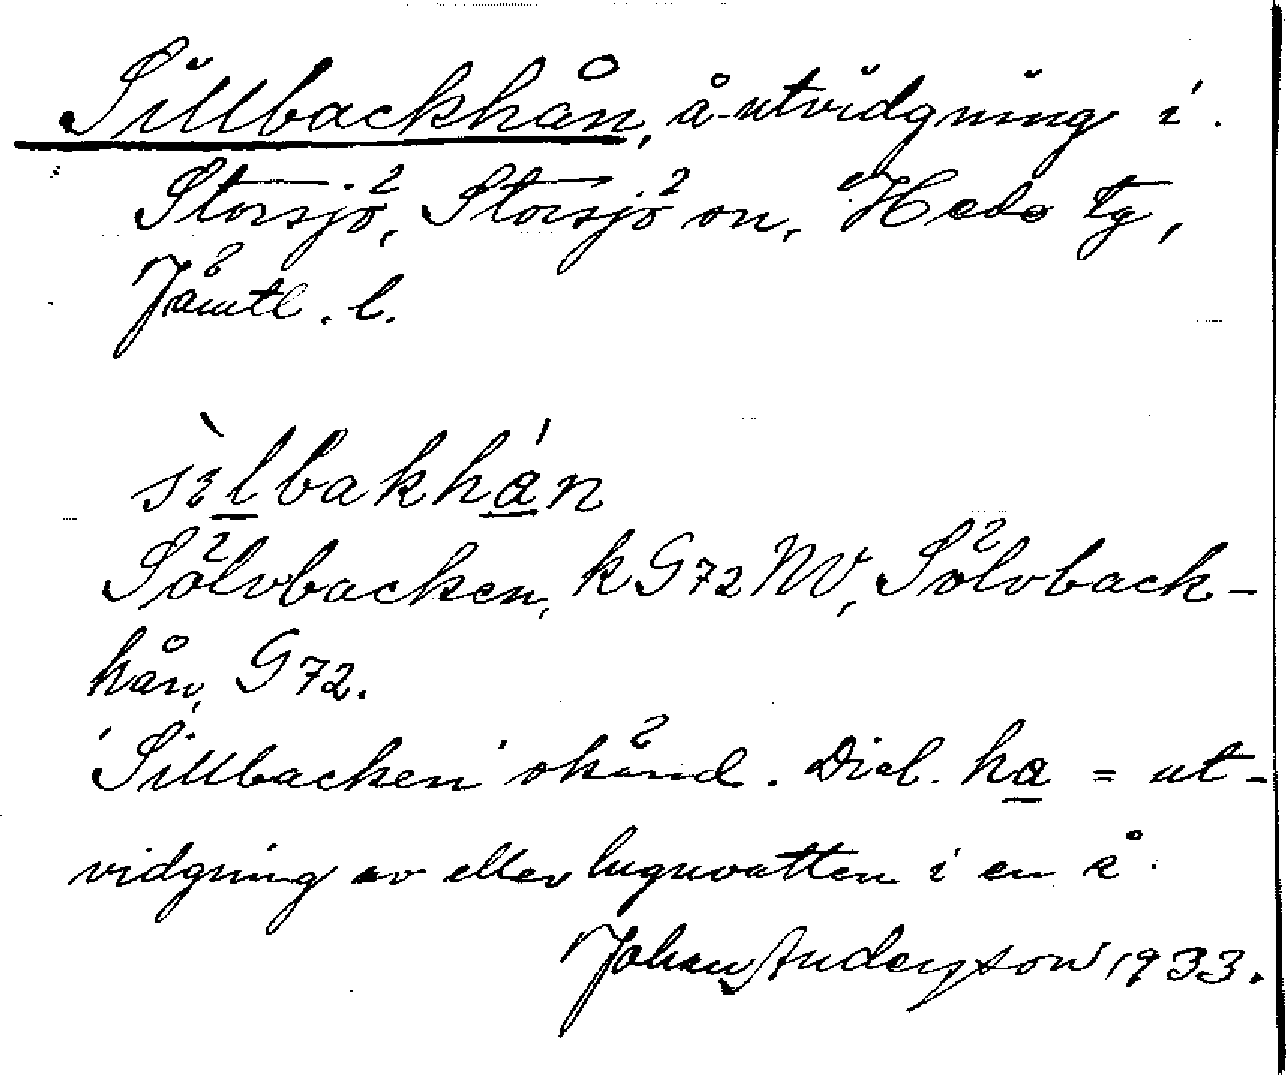 Sillbackhån, å-utvidgning i
Storsjö, Storsjö sn, Hede tg,
Jämtl. l.
sìlbakhán
Sölvbacken, k G72 NV, Sölvback-
hån, G72.
'Sillbacken' okänd. Dial. ha = ut-
vidgning av eller lugnvatten i en å.
Johan Anderson 1933.